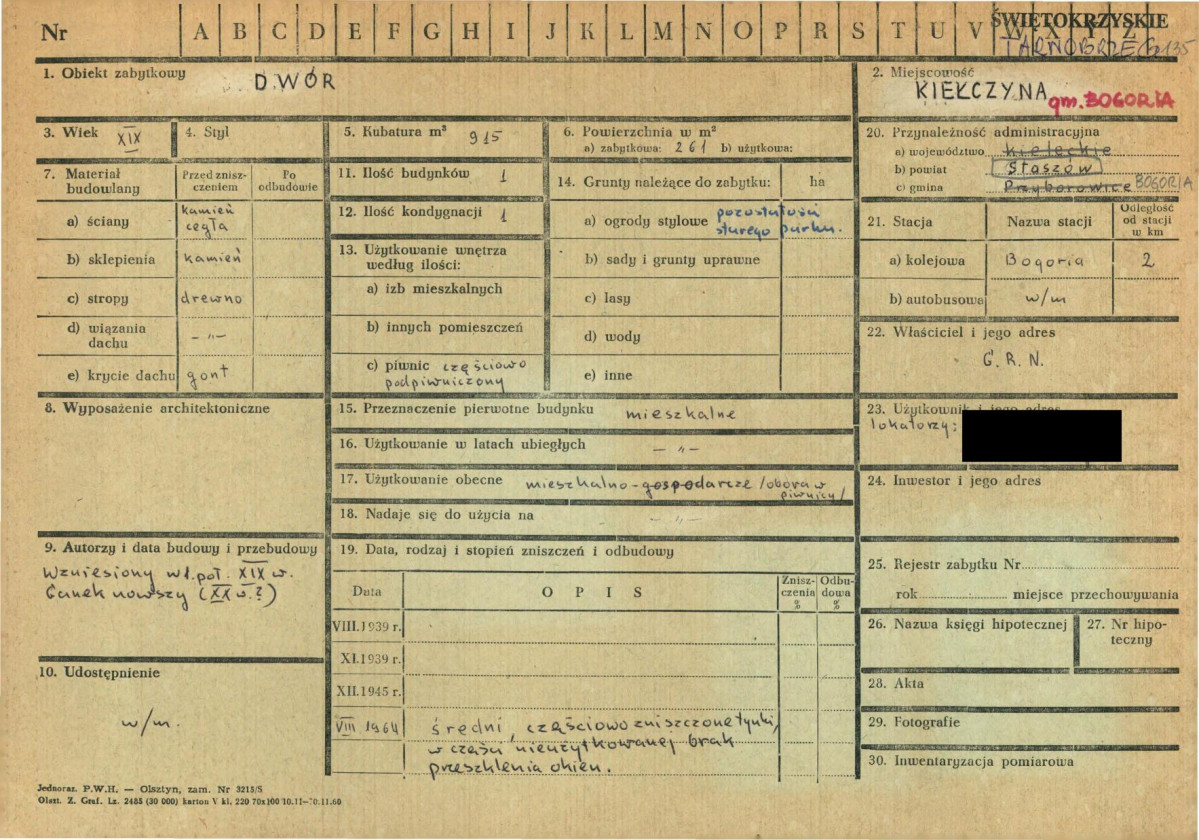 Nr A B C D E F G H I J K L M N O P R S T U V W X Y Z
ŚWIĘTOKRZYSKIE
TARNOBRZEG
1. Obiekt zabytkowy
DWÓR
2. Miejscowość
KIEŁCZYNA
gm. BOGORIA
3. Wiek XIX
4. Styl
5. Kubatura m³ 915
6. Powierzchnia w m²
a) zabytkowa: 261 b) użytkowa:
7. Materiał budowlany
Przed zniszczeniem
Po odbudowie
a) ściany kamień cegła
b) sklepienia kamień
c) stropy drewno
d) wiązania dachu - „ -
e) krycie dachu gont
8. Wyposażenie architektoniczne
9. Autorzy i data budowy i przebudowy
Wzniesiony w 1. poł. XIX w.
Ganek nowszy (XX w.?)
10. Udostępnienie
w/m.
11. Ilość budynków 1
12. Ilość kondygnacji 1
13. Użytkowanie wnętrza według ilości:
a) izb mieszkalnych
b) innych pomieszczeń
c) piwnic częściowo
podpiwniczony
14. Grunty należące do zabytku: ha
a) ogrody stylowe pozostałości
starego parku.
b) sady i grunty uprawne
c) lasy
d) wody
e) inne
15. Przeznaczenie pierwotne budynku mieszkalne
16. Użytkowanie w latach ubiegłych - „ -
17. Użytkowanie obecne mieszkalno-gospodarcze /obora w
piwnicy/
18. Nadaje się do użycia na - „ -
19. Data, rodzaj i stopień zniszczeń i odbudowy
Data
OPIS
Zniszczenia %
Odbudowa %
VIII.1939 r.
XI.1939 r.
XII.1945 r.
VIII 1964 średni, częściowo zniszczone tynki,
w części nieużytkowanej brak
przeszklenia okien.
20. Przynależność administracyjna
a) województwo kieleckie
b) powiat Staszów
c) gmina Przyborowice BOGORIA
21. Stacja
Nazwa stacji
Odległość od stacji w km
a) kolejowa Bogoria 2
b) autobusowa w/m
22. Właściciel i jego adres
G.R.N.
23. Użytkownik i jego adres
lokatorzy:
24. Inwestor i jego adres
25. Rejestr zabytku Nr
rok miejsce przechowywania
26. Nazwa księgi hipotecznej
27. Nr hipoteczny
28. Akta
29. Fotografie
30. Inwentaryzacja pomiarowa
Jednoraz. P.W.H. — Olsztyn, zam. Nr 3215/S
Olszt. Z. Graf. Lz. 2485 (30 000) karton V kl. 220 70x100 10.11—10.11.60